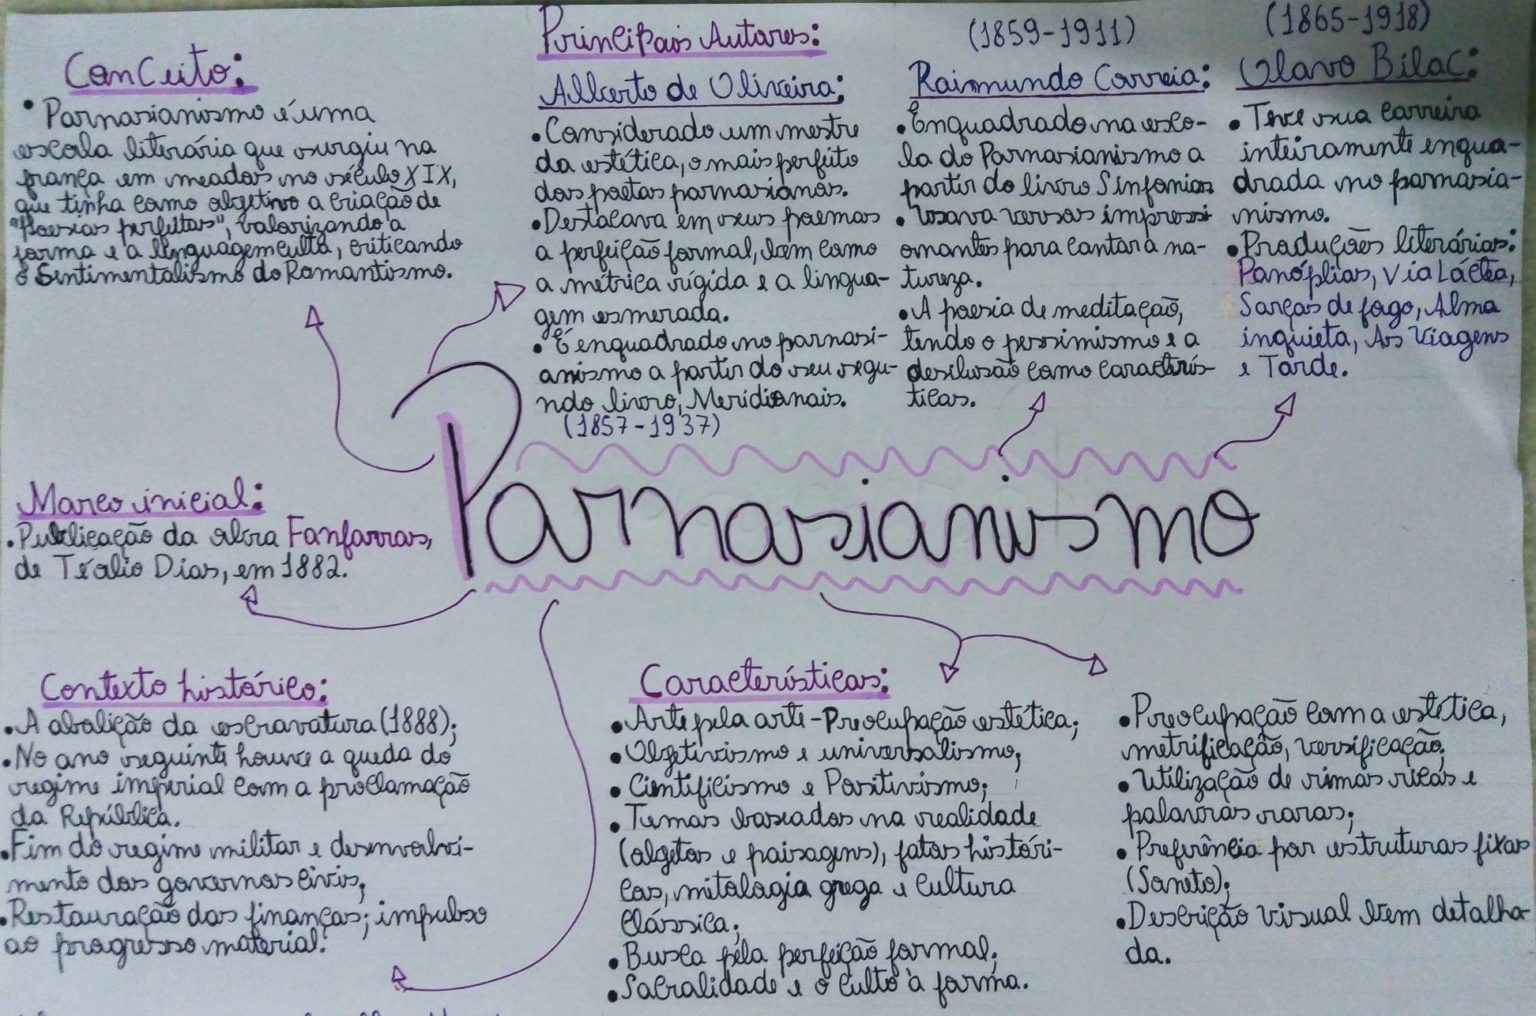 Conceito:
• Parnasianismo é uma
escola literária que surgiu na
frança em meados no século XIX,
que tinha como objetivo a criação de
"Poesias perfeitas", valorizando a
forma e a linguagem culta, criticando
o Sentimentalismo do Romantismo.
Principais Autores:
Alberto de Oliveira:
• Considerado um mestre
da estética, o mais perfeito
dos poetas parnasianos.
• Destacava em seus poemas
a perfeição formal, bem como
a métrica rígida e a lingua-
gem esmerada.
• É enquadrado no parnasi-
anismo a partir do seu segu-
ndo livro, Meridionais.
(1857-1937)
(1859-1911)
Raimundo Correia:
• Enquadrado na esco-
la do Parnasianismo a
partir do livro Sinfonias
• Usava versos impressi
onantes para cantar a na-
tureza.
• A poesia de meditação,
tendo o pessimismo e a
desilusão como caracterís-
ticas.
(1865-1918)
Olavo Bilac:
• Teve sua carreira
inteiramente enqua-
drada no parnasia-
nismo.
• Produções literárias:
Panóplias, Via Láctea,
Sarças de fogo, Alma
inquieta, As Viagens
e Tarde.
Parnasianismo
Marco inicial:
• Publicação da obra Fanfarras,
de Teólio Dias, em 1882.
Contexto histórico:
• A abolição da escravatura (1888);
• No ano seguinte houve a queda do
regime imperial com a proclamação
da República.
• Fim do regime militar e desenvolvi-
mento dos governos civis;
• Restauração das finanças; impulso
ao progresso material.
Características:
• Arte pela arte - Preocupação estética;
• Objetivismo e universalismo;
• Cientificismo e Positivismo;
• Temas baseados na realidade
(objetos e paisagens), fatos históri-
cos, mitologia grega e cultura
clássica;
• Busca pela perfeição formal;
• Sacralidade e o culto à forma.
• Preocupação com a estética,
metrificação, versificação;
• Utilização de rimas ricas e
palavras raras;
• Preferência por estruturas fixas
(Soneto);
• Descrição visual bem detalha-
da.